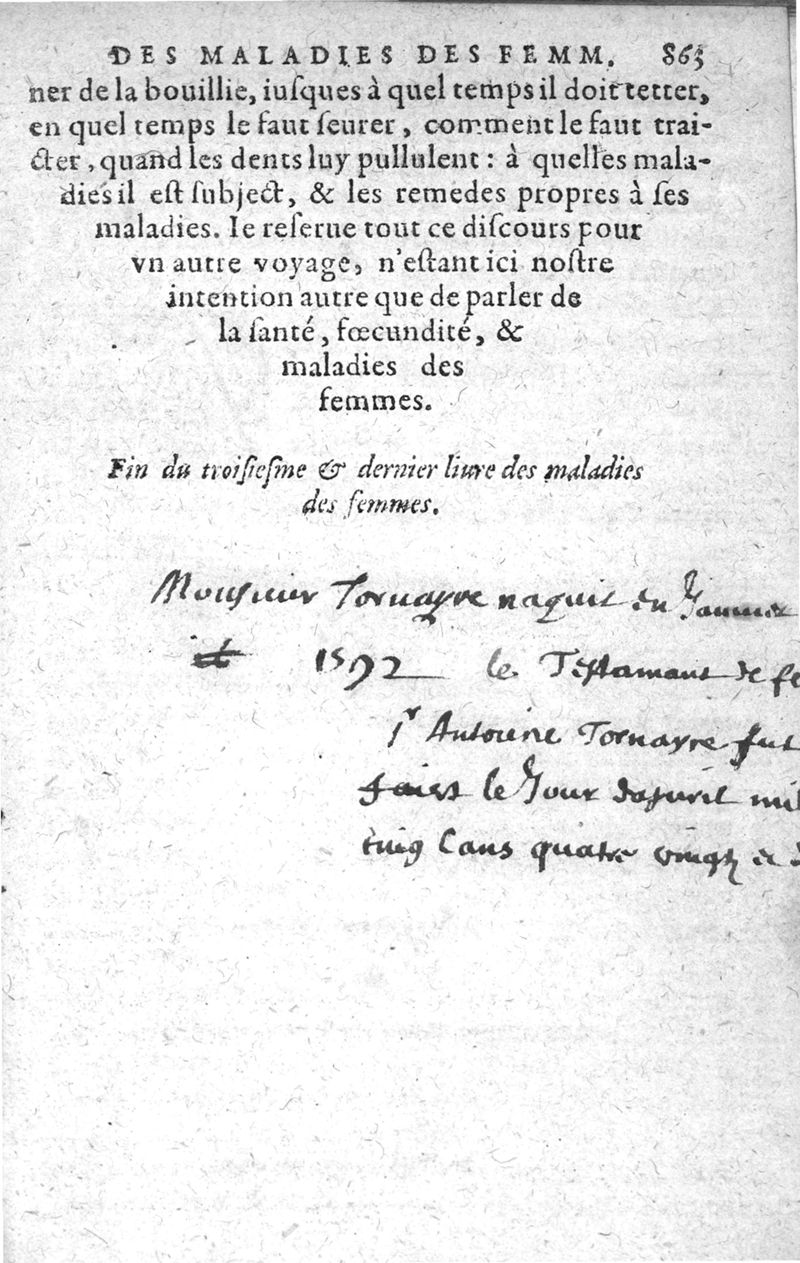 DES MALADIES DES FEMM. 863
ner de la bouillie, iuſques à quel temps il doit tetter,
en quel temps le faut ſeurer, comment le faut trai-
cter, quand les dents luy pullulent : à quelles mala-
dies il eſt ſubject, & les remedes propres à ſes
maladies. Ie reſerue tout ce diſcours pour
vn autre voyage, n'eſtant ici noſtre
intention autre que de parler de
la ſanté, fœcundité, &
maladies des
femmes.
Fin du troiſieſme & dernier liure des maladies
des femmes.
Monsieur Tornayre naquit en
1592 le Testamant de fe
Sr Antoine Tornayre fut
faict le Jour mil
cinq Cans quatre vingtz et